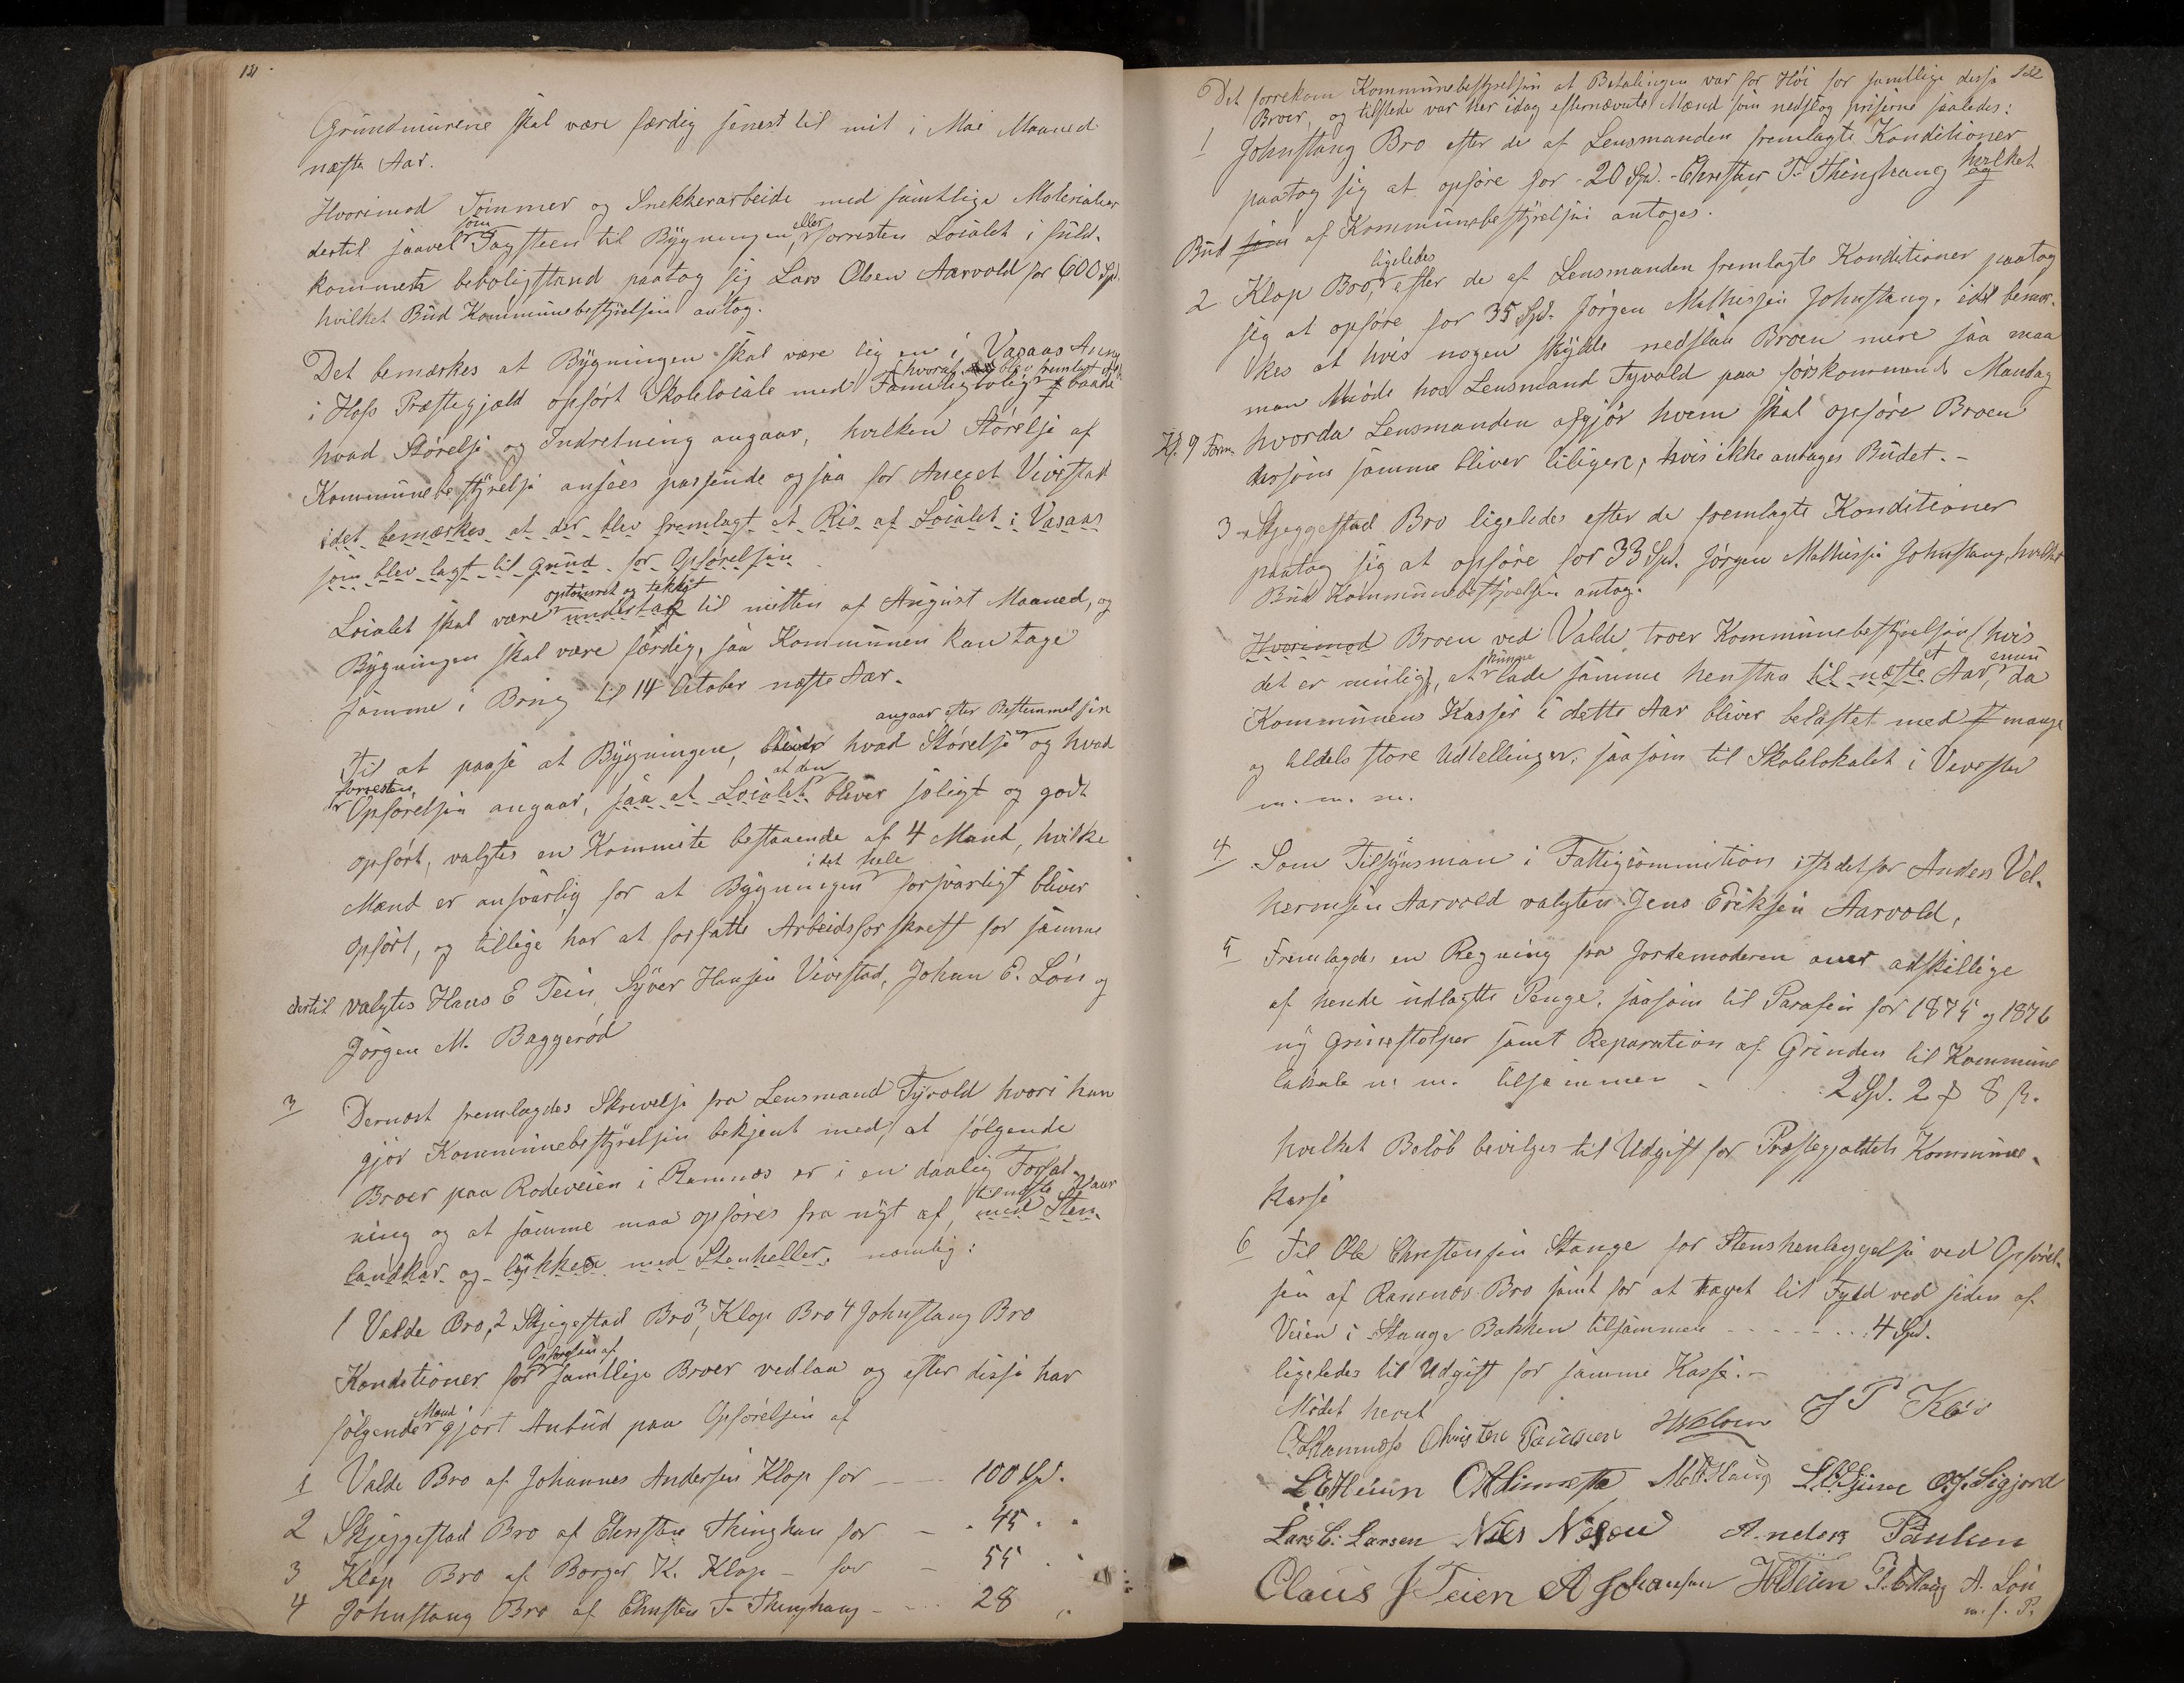 121
Grundmurene skal være færdig senest til mit i Mai Maaned
næste Aar.
Hvorimod Tømmer og Snekkerarbeide med samtlige Materialier
dertil saavel som Tagsteen til Bygningen, eller forresten Localet i fuld-
kommen beboligstand paatog sig Lars Olsen Aarvold for 600 Spd
hvilket Bud Kommunebestyrelsen antog.
Det bemærkes at Bygningen skal være lig en i Vasaas Anex
i Hofs Præstegjæld opført Skolelocale med Familiebolig hvoraf blev fremlagt baade
hvad Størelse og Indretning angaar, hvilken Størelse af
Kommunebestyrelse ansees passende ogsaa for Anexet Vivestad
idet bemærkes at der blev fremlagt et Ris af Localet i Vasaas
som blev lagt til grund for Opførelsen
Localet skal være optømret og tækket undertag til mitten af August Maaned, og
Bygningen skal være færdig, saa Kommunen kan tage
samme i Brug til 14 October næste Aar.
Til at paase at Bygningen, bliver hvad Størelse angaar efter Bestemmelsen og hvad
forresten Opførelsen angaar, saa at Localet at den bliver soligt og godt
opført, valgtes en Kommite bestaaende af 4 Mand, hvilke
Mænd er ansvarlig for at Bygningen i det hele forsvarligt bliver
opført, og tillige har at forfatte Arbeidsforskreft for samme
dertil valgtes Hans E Tein, Syver Hansen Vivestad, Johan E. Lön og
Jörgen M. Baggerød
3 Dernæst fremlagdes Skrivelse fra Lensmand Tyvold hvori han
gjør Kommunebestyrelsen bekjent med, at følgende
Broer paa Rodeveien i Ramnæs er i en daarlig Forfat-
ning og at samme maa opføres fra nyt af, til næste Vaar med Sten
landkar og lykkes med Stenheller, nemlig:
1 Valde Bro, 2 Skjegestad Bro 3, Klop Bro 4 Johnstang Bro
Konditioner for Opførelsen af samtlige Broer vedlaa og efter disse har
følgende Mænd gjort Anbud paa Opførelsen af
1 Valde Bro af Johannes Andersen Klop for 100 Spd.
2 Skjeggestad Bro af Christen Thinghau for - 45 "
3 Klop Bro af Borger K. Klop - for - 55 "
4 Johnstang Bro af Christen T. Thinghaug - 28 "
122
Det forrekom Kommunebestyrelsen at Betalingen var for Høi for samtlige disse
Broer, og tilstede var her idag efternævnte Mænd som nedslog priserne saaledes:
1 Johnstang Bro efter de af Lensmanden fremlagte Konditioner
paatog sig at opføre for 20 Spd. Christen T. Thinghaug og hvilket
Bud som af Kommunebestyrelsen antoges.
2 Klop Bro, ligeledes efter de af Lensmanden fremlagte Konditioner paatog
sig at opføre for 35 Spd. Jørgen Mathisen Johnstang, idet bemær-
kes at hvis nogen skylde nedslaa Broen mere saa maa
man Møde hos Lensmand Tyvold paa førskommende Mandag
Kl. 9 Form. hvorda Lensmanden afgjør hvem skal opføre Broen
dersom samme bliver biligere, hvis ikke antages Budet. -
3 Skjeggestad Bro ligeledes efter de fremlagte Konditioner
paatog sig at opføre for 33 Spd. Jørgen Mathisen Johnstang, hvilket
Bud Kommunebestyrelsen antog.
Hvorimod Broen ved Valde, troer Kommunebestyrelsen (hvis
det er mulig), at kunne lade samme henstaa til næste et Aar, enu da
Kommunens Kasser i dette Aar bliver belastet med mange
og tildels store Udtellinger, saasom til Skolelokalet i Vivestad
m. m. m.
4 Som Tilsynsman i Fattigcommition istedetfor Anders Vel-
hermsen Aarvold valgtes Jens Eriksen Aarvold,
5 Fremlagdes en Regning fra Jordemoderen over adskillige
af hende udlagte Penge, saasom til Parafin for 1875 og 1876
ny Grinestolper samt Reparation af Grinden til Kommune
lokale m. m. tilsammen - 2 Spd. 2 ₰ 8 ß.
hvilket Beløb bevilges til Udgift for Præstegjældets Kommune-
kasse
6 Til Ole Christensen Stange for Stenshenlæggelse ved Opførel-
sen af Ramnæs Bro samt for at taget lit Fyld ved siden af
Veien i Stange Bakken tilsammen - - - - 4 Spd.
ligeledes til Udgift for samme Kasse. -
Mødet hævet
Christen Paulsen J P Klöv
Lars C. Larsen Nils Nilsen Anders Paulsen
Claus J Teien A Johansen A. Lön
m. f. P.